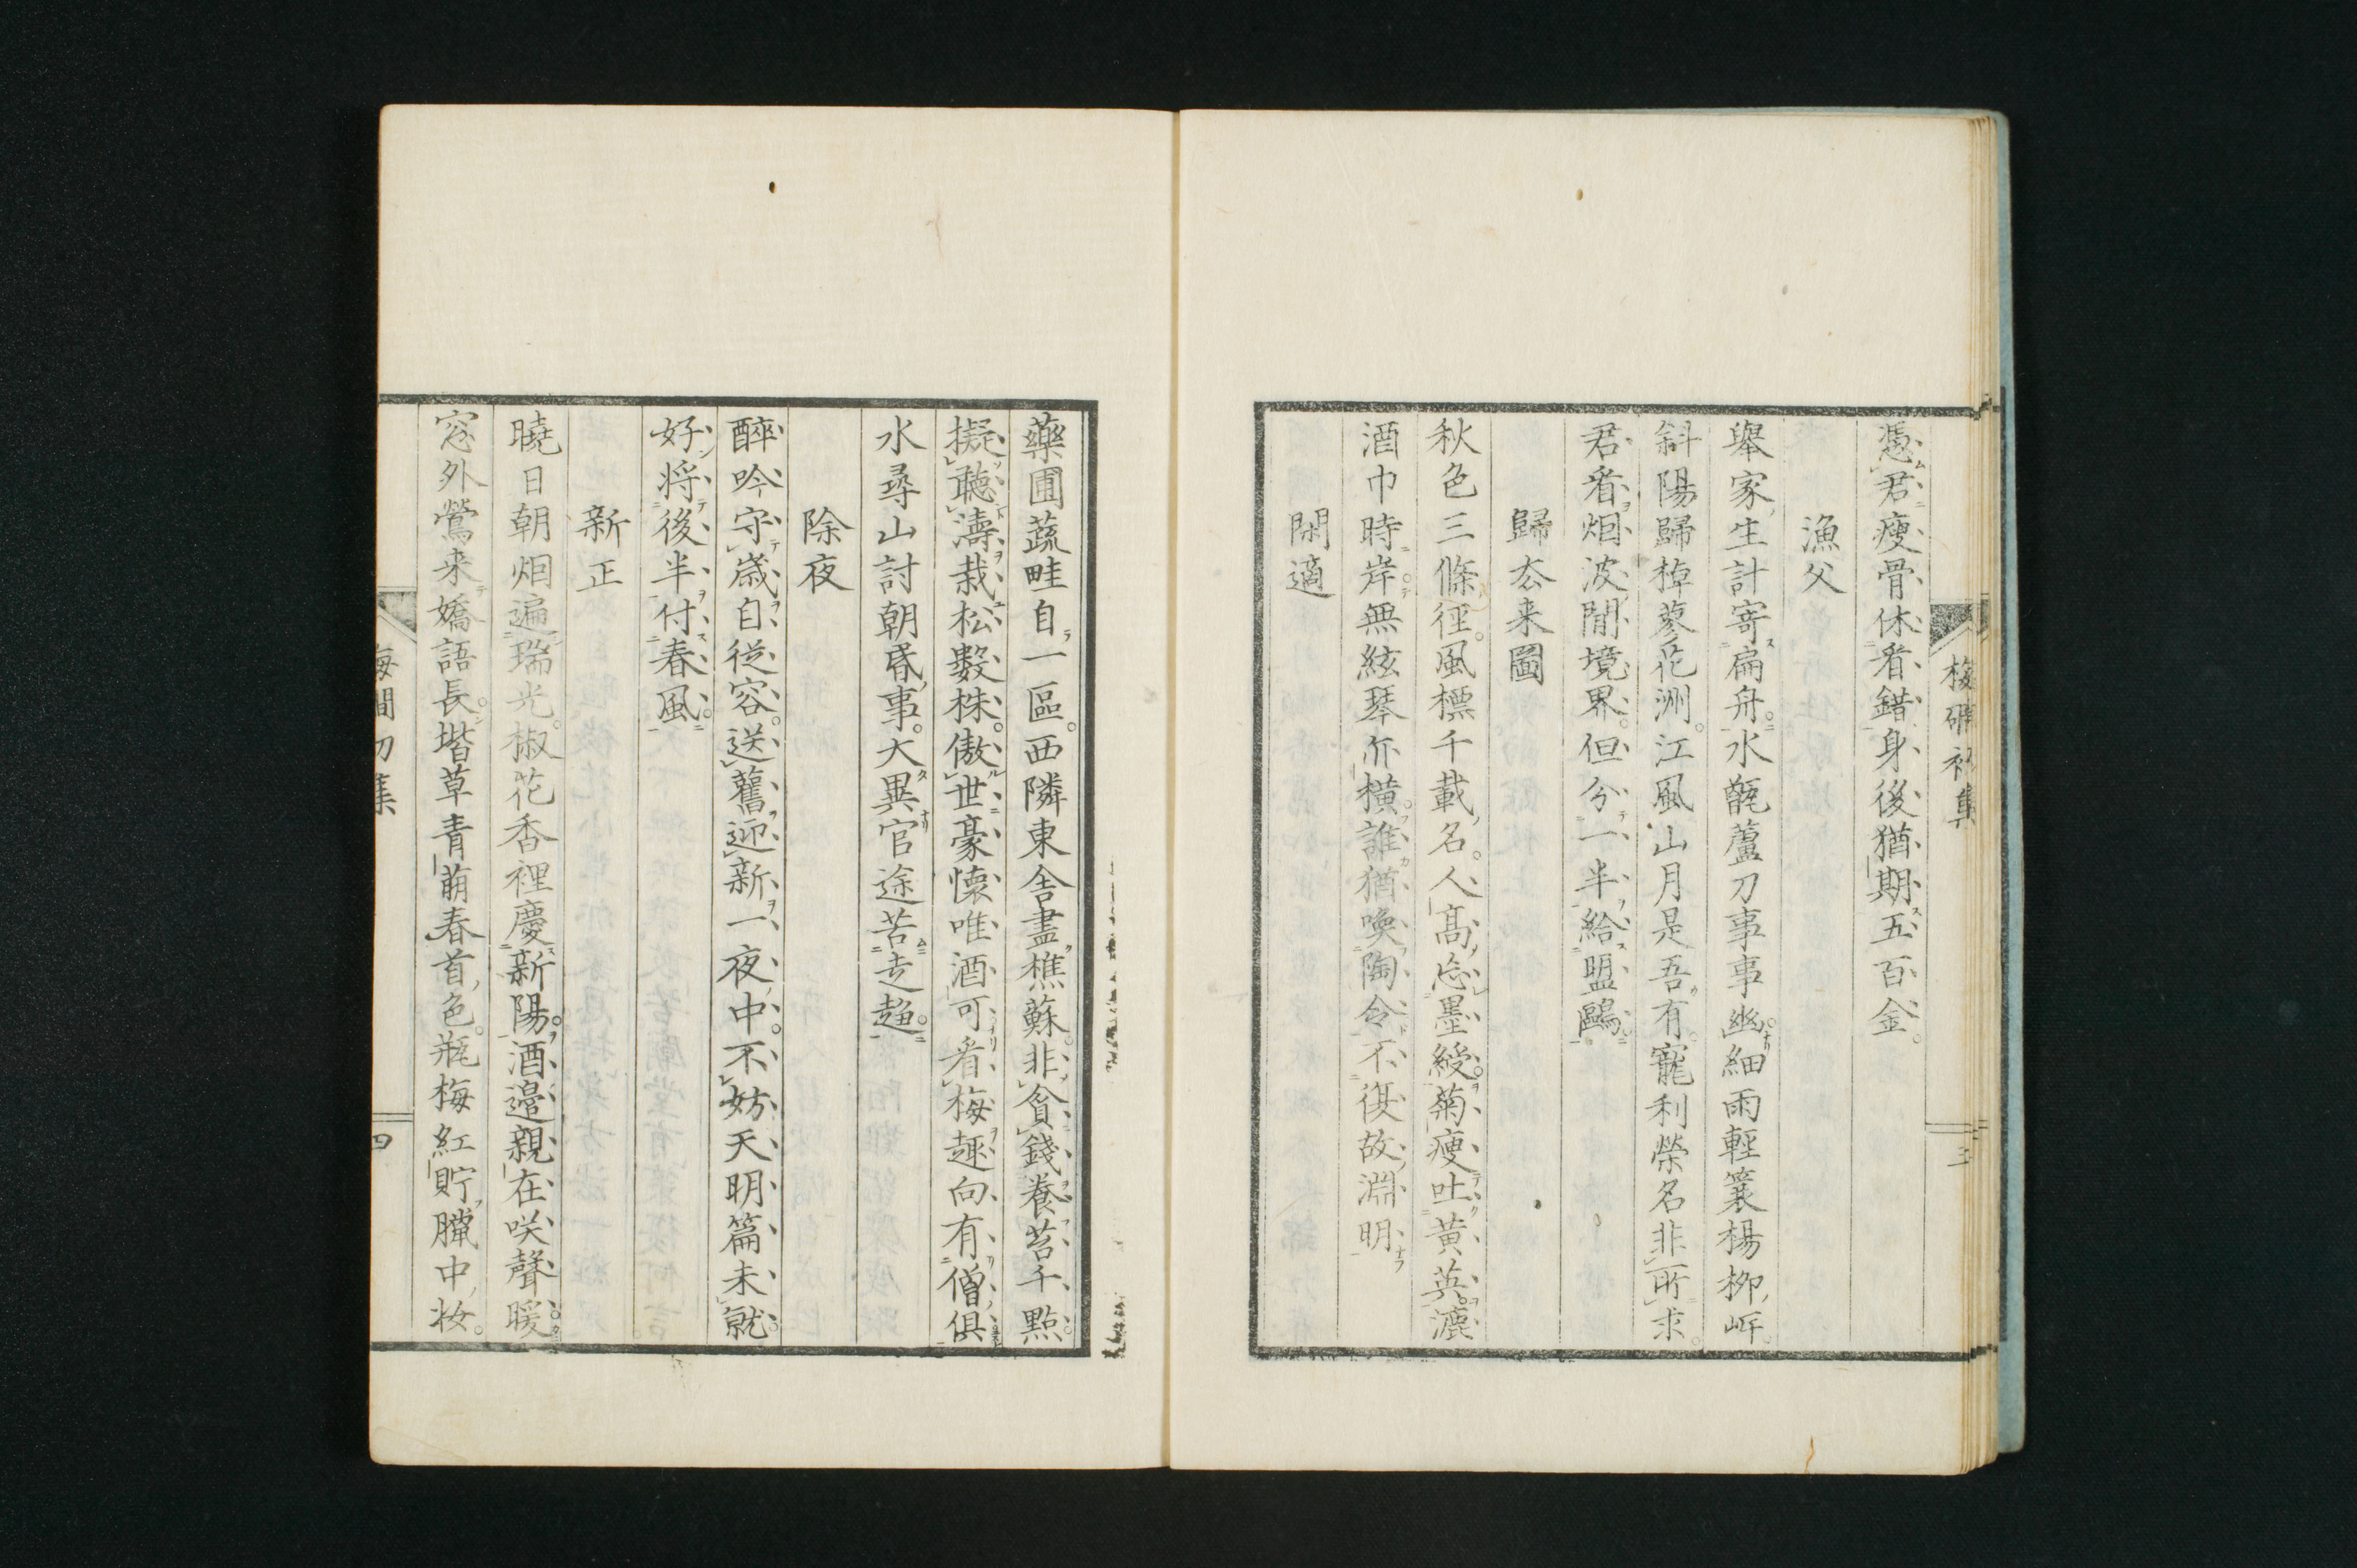 憑君瘦骨休看錯身後猶期五百金
漁父
舉家生計寄扁舟水瓶蘆刀事事幽細雨輕簑楊柳岸
斜陽歸棹蓼花洲江風山月是吾有寵利榮名非所求
君看烟波閒境界但分一半給盟鷗
歸去来圖
秋色三條徑風標千載名人高忘墨綬菊瘦吐黃英漉
酒巾時岸無絃琴亦橫誰猶喚陶令不復故淵明
閑適
藥圃蔬畦自一區西隣東舍盡樵蘇非貪錢養苔千點
擬聽濤栽松數株傲世豪懷唯酒可看梅趣向有僧俱
水尋山討朝昏事大異官途苦走趨
除夜
醉吟守歳自従容送舊迎新一夜中不妨天明篇未就
好将後半付春風
新正
曉日朝烟遍瑞光椒花香裡慶新陽酒邊親在咲聲暖
窓外鶯来嬌語長堦草青萠春首色瓶梅紅貯臘中妆
四